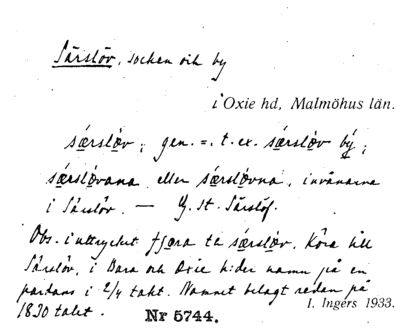 Särslöv, socken och by
i Oxie hd, Malmöhus län.
sǽrslø̨v; gen. =. t. ex. sǽrslø̨v bý;
sǽrslø̨vana eller sǽrslø̨vna, invånarna
i Särslöv. — Y. st. Särslöf.
Obs. i uttrycket fjøra ta sǽrsløv, köra till
Särslöv, i Bara och Oxie h:der namn på en
pardans i 2/4 takt. Namnet belagt redan på
1830 talet.
I. Ingers 1933.
Nr 5744.